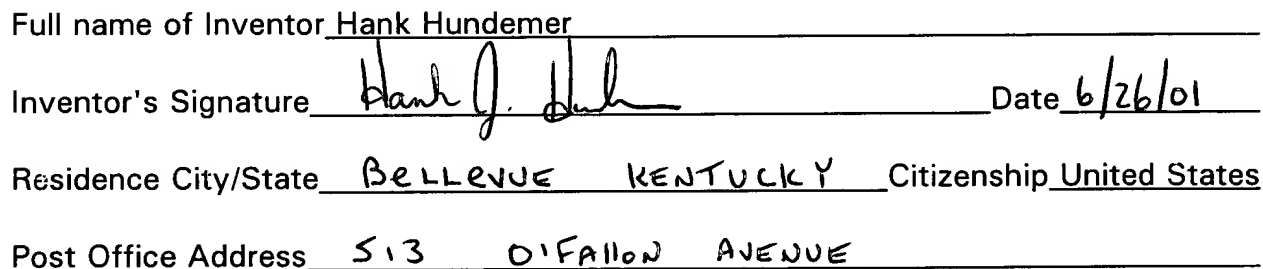 Full name of Inventor Hank Hundemer
Inventor's Signature Hank J. Date 6/26/01
Residence City/State BeLLevUE KENTUCKY Citizenship United States
Post Office Address 513 O'FAllON AVENUE